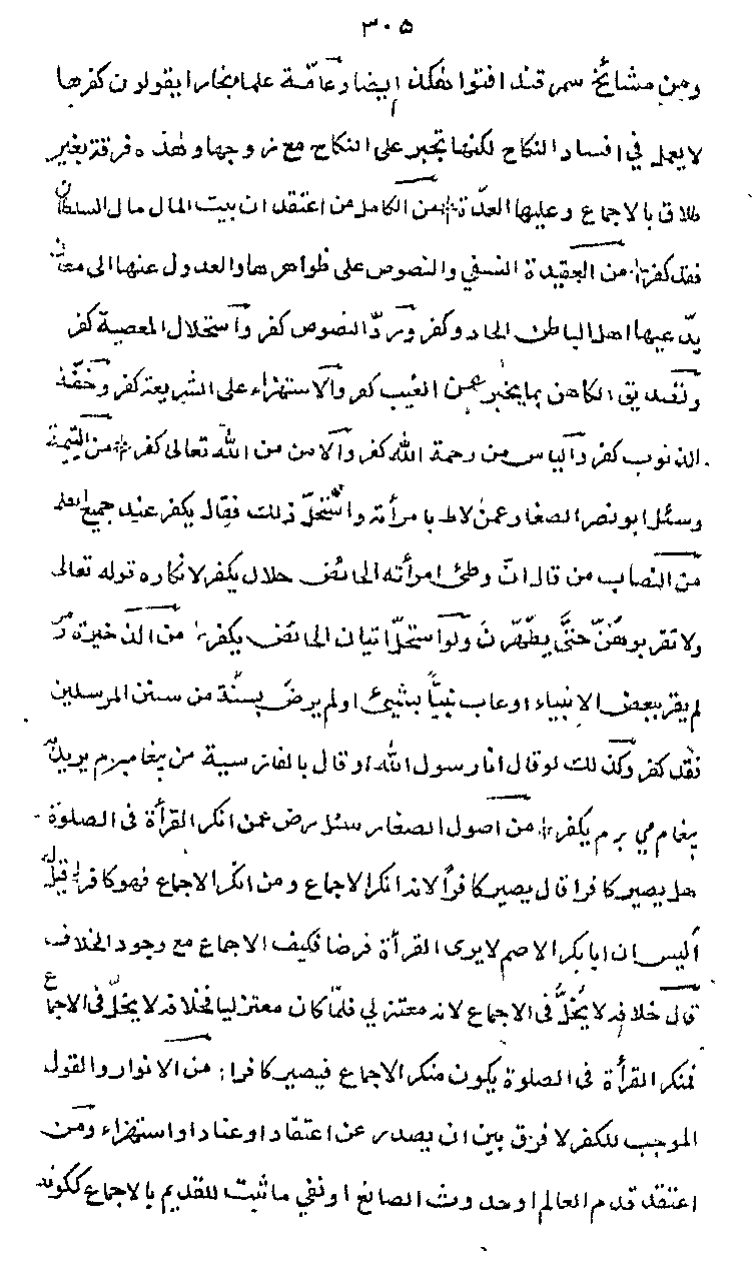 ٣٠٥
ومن مشائخ سمرقند افتوا هكذا ايضا وعامّة علماء بخارا يقولون كفرها
لا يعمل في افساد النكاح لكنها تجبر على النكاح مع زوجها وهذه فرقة بغير
طلاق بالاجماع وعليها العدّة من الكامل من اعتقد ان بيت المال مال السلطان
فقد كفر من العقيدة النسفي والنصوص على ظواهرها والعدول عنها الى معان
يدّعيها اهل الباطن الحاد وكفر وردّ النصوص كفر واستحلال المعصية كفر
وتصديق الكاهن بما يخبر عن الغيب كفر والاستهزاء على الشريعة كفر وخفّة
الذنوب كفر والياس من رحمة الله كفر والامن من الله تعالى كفر من اليتيمة
وسئل ابو نصر الصفار عمن لاط بامرأته واستحلّ ذلك فقال يكفر عند جميع العلماء
من النصاب من قال انّ وطئ امرأته الحائض حلال يكفر لانكاره قوله تعالى
ولا تقربوهنّ حتّى يطّهّرن ولو استحلّ اتيان الحائض يكفر من الذخيرة من
لم يقر ببعض الانبياء او عاب نبيّاً بشيئ او لم يرض بسنّة من سنن المرسلين
فقد كفر وكذلك لو قال انا رسول الله او قال بالفارسية من پيغامبرم يريد به
پيغام مي برم يكفر من اصول الصفار سئل رض عمن انكر القرأة في الصلوة
هل يصير كافرا قال يصير كافراً لانه انكر الاجماع ومن انكر الاجماع فهو كافر قيل له
أليس ان ابا بكر الاصم لا يرى القرأة فرضا فكيف الاجماع مع وجود الخلاف
قال خلافه لا يُخلّ في الاجماع لانه معتزلي فلمّا كان معتزليا فخلافه لا يخلّ في الاجماع
فمنكر القرأة في الصلوة يكون منكر الاجماع فيصير كافرا من الانوار والقول
الموجب للكفر لا فرق بين ان يصدر عن اعتقاد او عناد او استهزاء ومن
اعتقد قدم العالم او حدوث الصانع او نفي ما ثبت للقديم بالاجماع ككونه